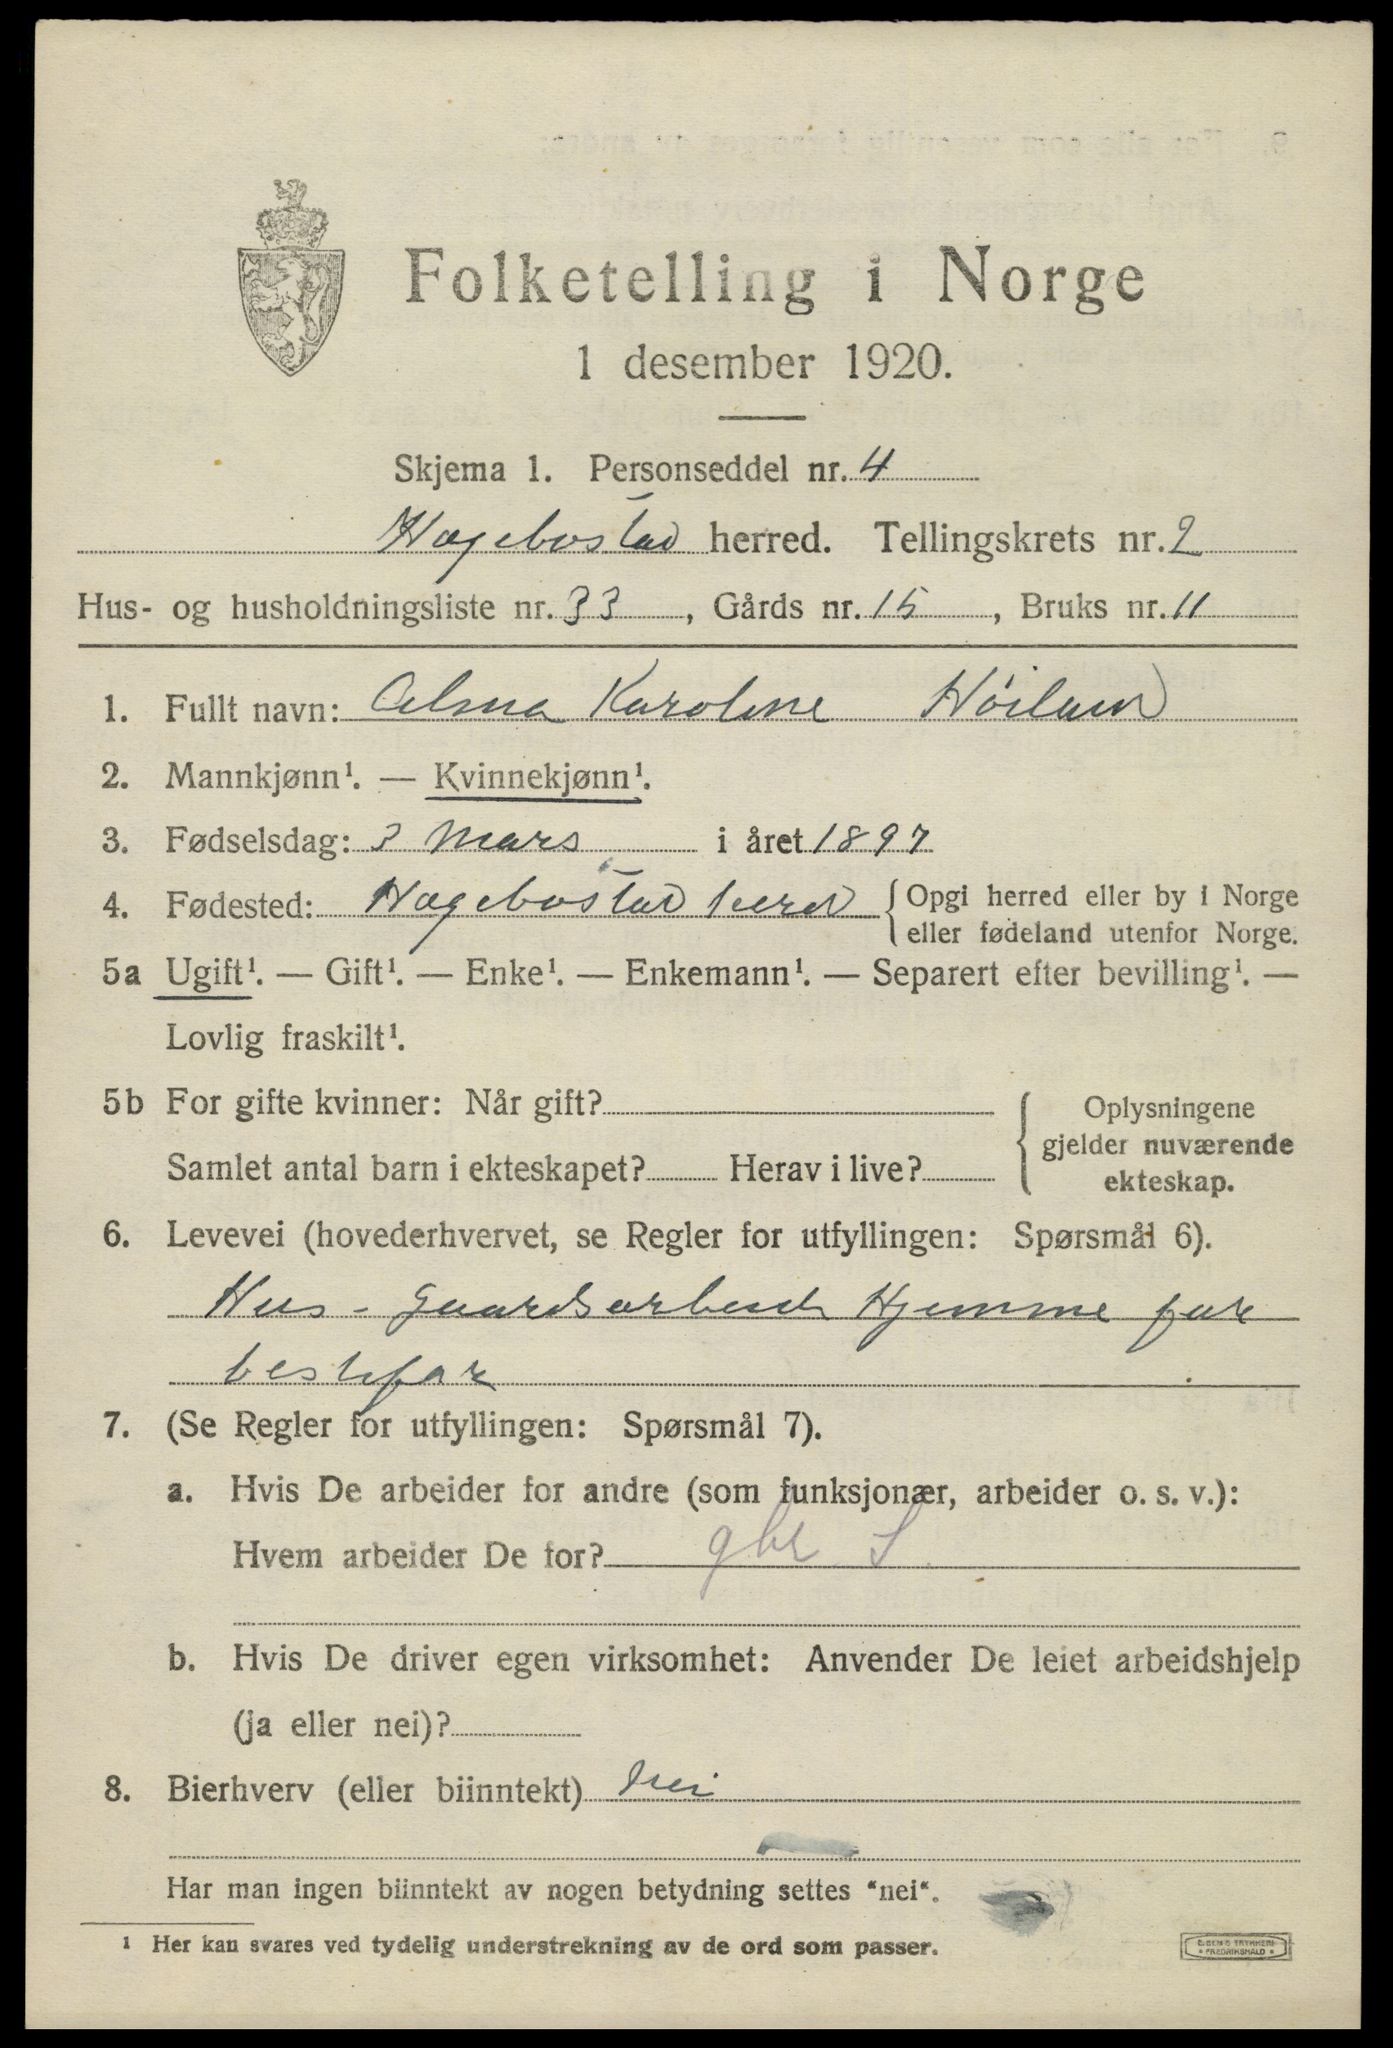 Folketelling i Norge
1 desember 1920.
Skjema 1. Personseddel nr. 4
Hægebostad herred. Tellingskrets nr. 2
Hus- og husholdningsliste nr. 33, Gårds nr. 15, Bruks nr. 11
1. Fullt navn: Alma Karoline Höiland
2. Mannkjønn¹. — Kvinnekjønn¹.
3. Fødselsdag: 3 Mars i året 1897
4. Fødested: Hægebostad herred { Opgi herred eller by i Norge
eller fødeland utenfor Norge.
5a Ugift¹. — Gift¹. — Enke¹. — Enkemann¹. — Separert efter bevilling¹. —
Lovlig fraskilt¹.
5b For gifte kvinner: Når gift? { Oplysningene
gjelder nuværende
Samlet antal barn i ekteskapet? Herav i live?
ekteskap.
6. Levevei (hovederhvervet, se Regler for utfyllingen: Spørsmål 6).
Hus- gaardsarbeide Hjemme for
bestefar
7. (Se Regler for utfyllingen: Spørsmål 7).
a. Hvis De arbeider for andre (som funksjonær, arbeider o. s. v.):
Hvem arbeider De for? gbr S
b. Hvis De driver egen virksomhet: Anvender De leiet arbeidshjelp
(ja eller nei)?
8. Bierhverv (eller biinntekt) nei
Har man ingen biinntekt av nogen betydning settes "nei".
¹ Her kan svares ved tydelig understrekning av de ord som passer.